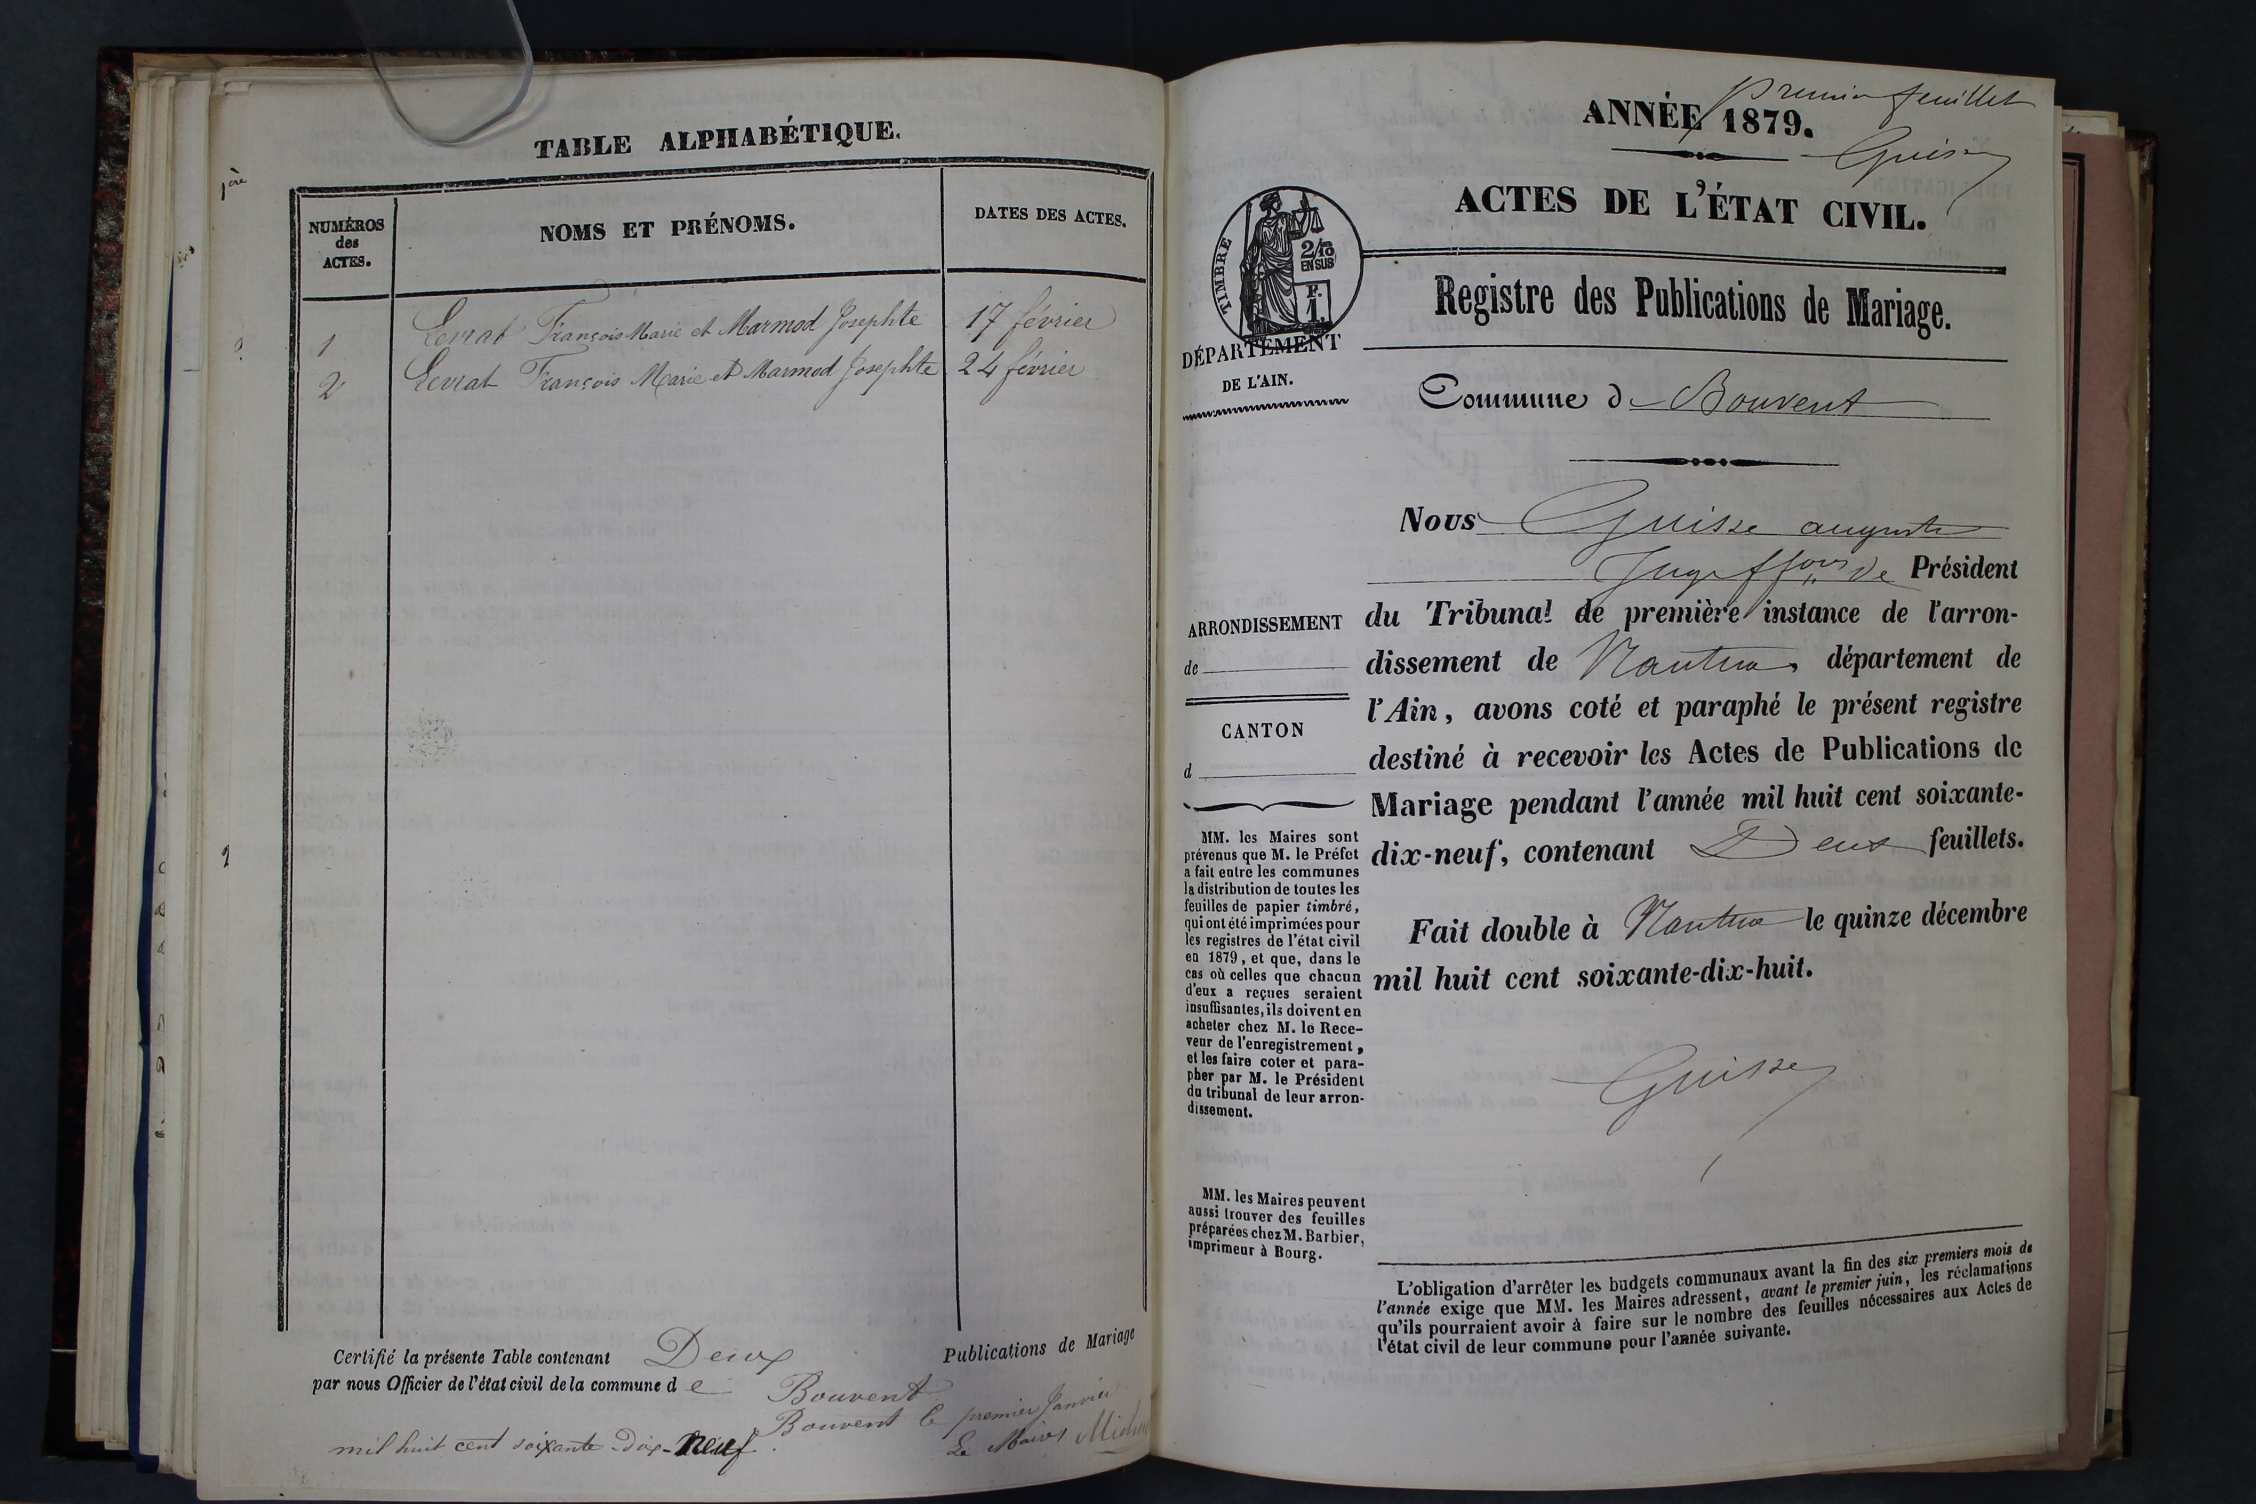 TABLE ALPHABÉTIQUE.
1ère
NUMÉROS
des
ACTES.
NOMS ET PRÉNOMS.
DATES DES ACTES.
1 Levrat François Marie et Marmod Josephte 17 février
2 Levrat François Marie et Marmod Josephte 24 février
Certifié la présente Table contenant Deux Publications de Mariage
par nous Officier de l'état civil de la commune de Bouvent
Bouvent le premier Janvier
mil huit cent soixante-dix-neuf.
Le Maire
premier feuillet
ANNÉE 1879.
Guisse
ACTES DE L'ÉTAT CIVIL.
TIMBRE
2/10
EN SUB
F.
1.
Registre des Publications de Mariage.
DÉPARTEMENT
DE L'AIN.
Commune de Bouvent
Nous Guisse auguste
Juge ffons de Président
du Tribunal de première instance de l'arron-
dissement de Nantua, département de
l'Ain, avons coté et paraphé le présent registre
destiné à recevoir les Actes de Publications de
Mariage pendant l'année mil huit cent soixante-
dix-neuf, contenant Deux feuillets.
Fait double à Nantua le quinze décembre
mil huit cent soixante-dix-huit.
Guisse
ARRONDISSEMENT
de
CANTON
d
MM. les Maires sont
prévenus que M. le Préfet
a fait entre les communes
la distribution de toutes les
feuilles de papier timbré,
qui ont été imprimées pour
les registres de l'état civil
en 1879, et que, dans le
cas où celles que chacun
d'eux a reçues seraient
insuffisantes, ils doivent en
acheter chez M. le Rece-
veur de l'enregistrement,
et les faire coter et para-
pher par M. le Président
du tribunal de leur arron-
dissement.
MM. les Maires peuvent
aussi trouver des feuilles
préparées chez M. Barbier,
imprimeur à Bourg.
L'obligation d'arrêter les budgets communaux avant la fin des six premiers mois de
l'année exige que MM. les Maires adressent, avant le premier juin, les réclamations
qu'ils pourraient avoir à faire sur le nombre des feuilles nécessaires aux Actes de
l'état civil de leur commune pour l'année suivante.